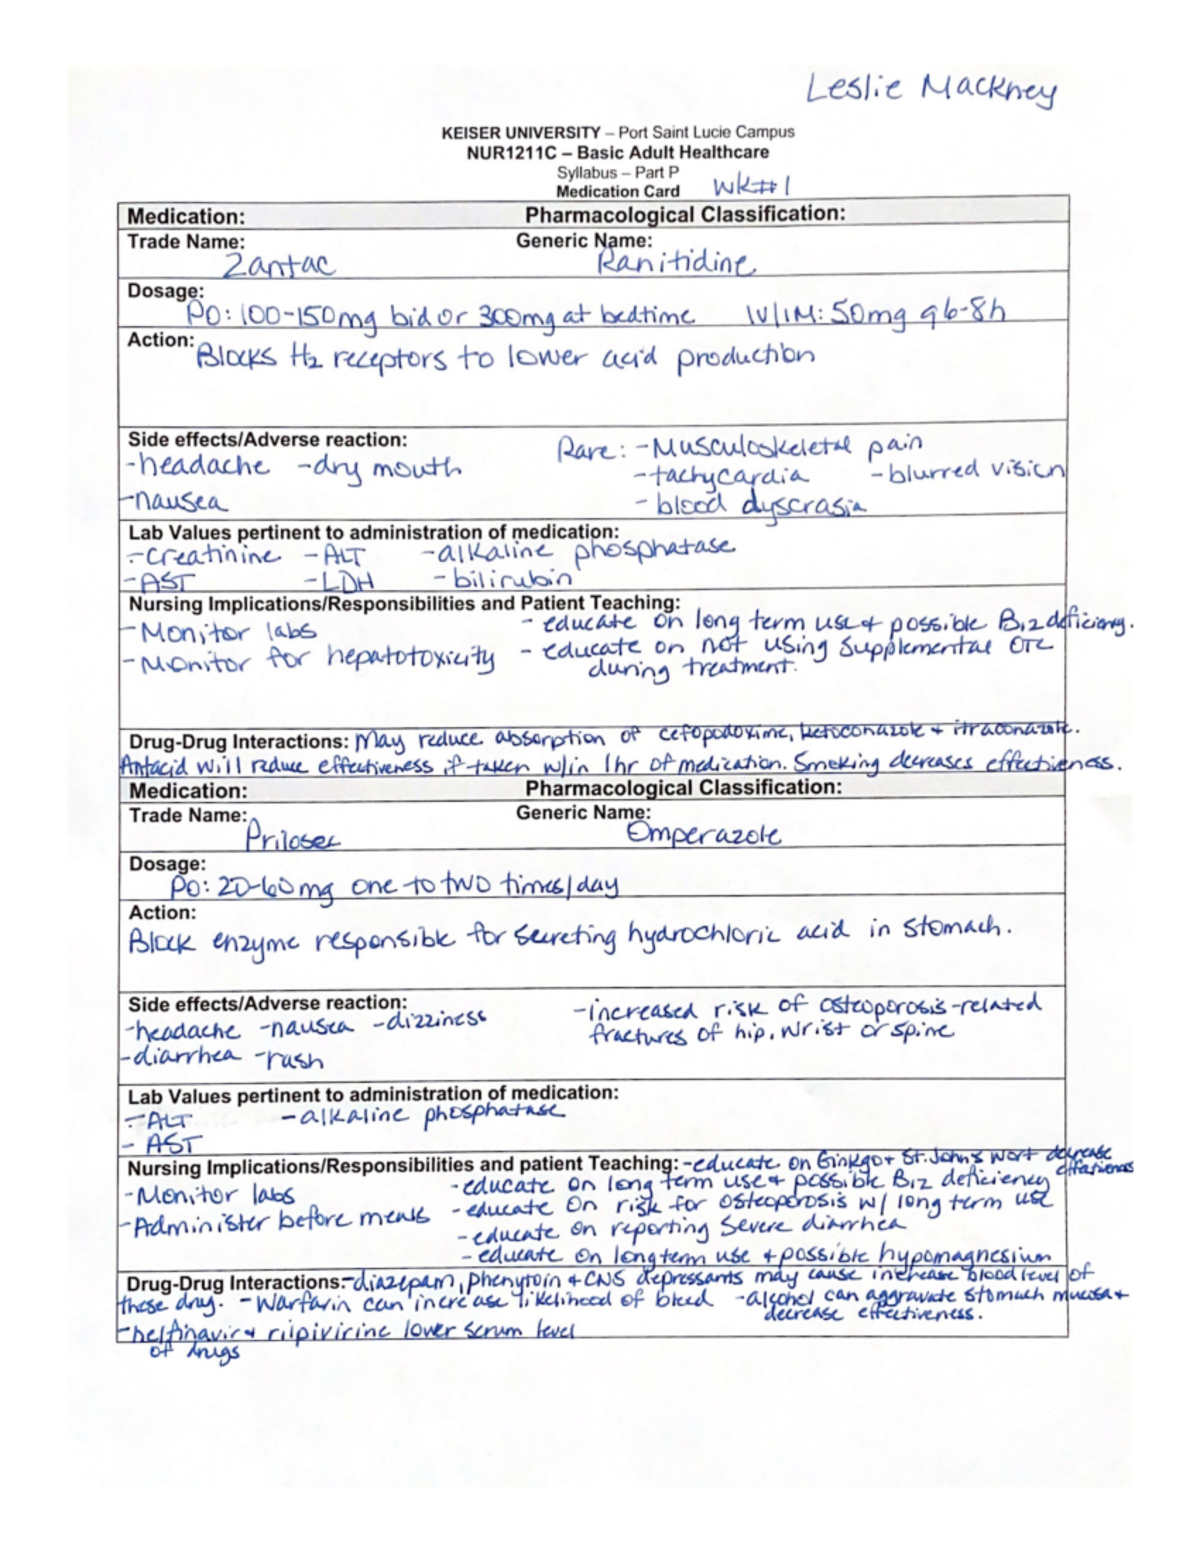 Leslie Mackney
KEISER UNIVERSITY – Port Saint Lucie Campus
NUR1211C – Basic Adult Healthcare
Syllabus – Part P
Medication Card WK#1
Medication: Pharmacological Classification:
Trade Name: Generic Name:
Zantac Ranitidine
Dosage:
PO: 100-150mg bid or 300mg at bedtime IV/IM: 50mg q6-8h
Action:
Blocks H2 receptors to lower acid production
Side effects/Adverse reaction: Rare: -Musculoskeletal pain
-headache -dry mouth -tachycardia -blurred vision
-nausea -blood dyscrasia
Lab Values pertinent to administration of medication:
-Creatinine -ALT -alkaline phosphatase
-AST -LDH -bilirubin
Nursing Implications/Responsibilities and Patient Teaching:
-Monitor labs -educate on long term use + possible B12 deficiency.
-Monitor for hepatotoxicity -educate on not using supplemental OTC
during treatment.
Drug-Drug Interactions: May reduce absorption of cefopodoxime, ketoconazole + itraconazole.
Antacid will reduce effectiveness if taken w/in 1hr of medication. Smoking decreases effectiveness.
Medication: Pharmacological Classification:
Trade Name: Generic Name:
Prilosec Omperazole
Dosage:
PO: 20-60mg one to two times/day
Action:
Block enzyme responsible for secreting hydrochloric acid in stomach.
Side effects/Adverse reaction: -increased risk of osteoporosis-related
-headache -nausea -dizziness fractures of hip, wrist or spine
-diarrhea -rash
Lab Values pertinent to administration of medication:
-ALT -alkaline phosphatase
-AST
Nursing Implications/Responsibilities and patient Teaching: -educate on Ginkgo + St. John's wort decrease effectiveness
-Monitor labs -educate on long term use + possible B12 deficiency
-Administer before meals -educate on risk for osteoporosis w/ long term use
-educate on reporting severe diarrhea
-educate on long term use + possible hypomagnesium
Drug-Drug Interactions: -diazepam, phenytoin + CNS depressants may cause increase blood level of
these drug. -Warfarin can increase likelihood of bleed -alcohol can aggravate stomach mucosa +
decrease effectiveness.
-nelfinavir + rilpivirine lower serum level
of drugs